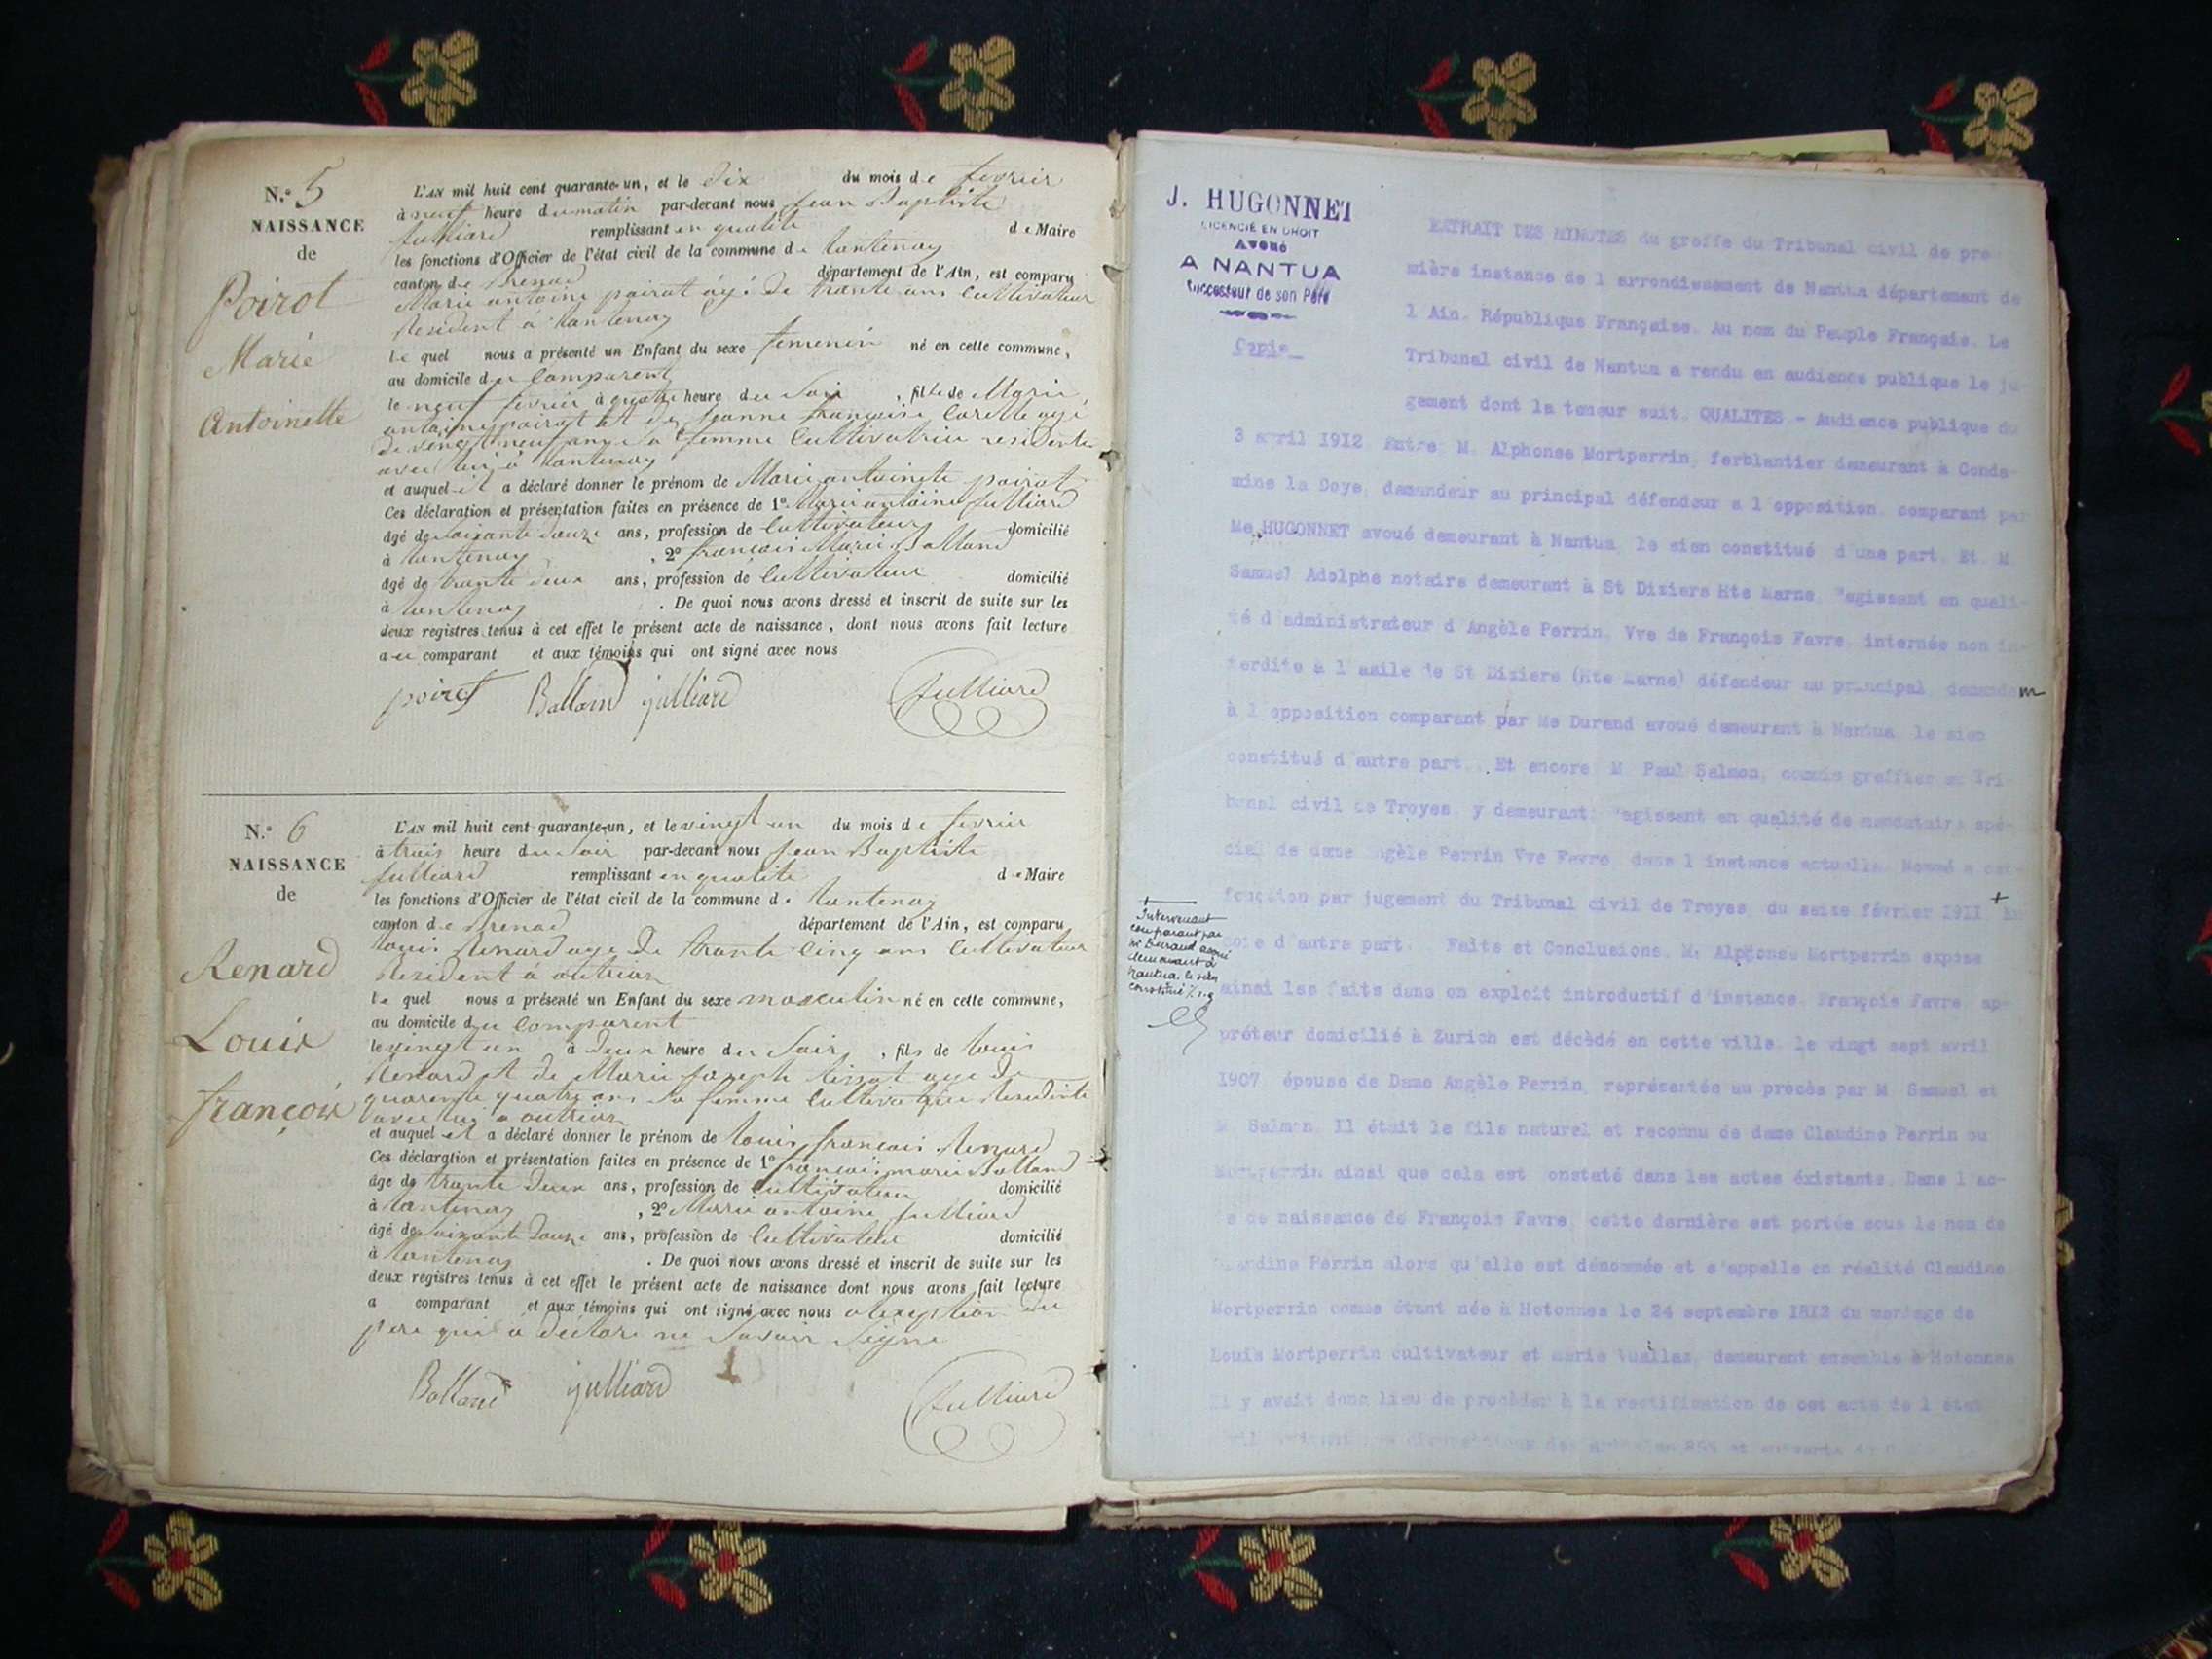 N.° 5
NAISSANCE
de
Poirot
Marie
Antoinette
L'AN mil huit cent quarante-un, et le dix du mois de fevrier
à neuf heure du matin par-devant nous Jean Baptiste
Julliard remplissant en qualité de Maire
les fonctions d'Officier de l'état civil de la commune de Lantenay
canton de Brenod département de l'Ain, est comparu
Marie antoine poirot agé de trante ans cultivateur
Resident a Lantenay
Le quel nous a présenté un Enfant du sexe femenin né en cette commune,
au domicile du Comparent
le neuf fevrier à quatre heure du Soir, fille de Marie
antoine poirot et de Jeanne françoise agé
de vingt neuf ans Sa femme Cultivatrice residente
avec lui a Lantenay
et auquel il a déclaré donner le prénom de Marie antoinete poirot
Ces déclaration et présentation faites en présence de 1° Marie antoine Julliard
âgé de soixante douze ans, profession de Cultivateur domicilié
à Lantenay, 2° francois Marie Balland
âgé de trante deux ans, profession de Cultivateur domicilié
à Lantenay. De quoi nous avons dressé et inscrit de suite sur les
deux registres tenus à cet effet le présent acte de naissance, dont nous avons fait lecture
au comparant et aux témoins qui ont signé avec nous
poirot Balland julliard Julliard
N.° 6
NAISSANCE
de
Renard
Louis
françois
L'AN mil huit cent quarante-un, et le vingt un du mois de fevrier
à trois heure du Soir par-devant nous Jean Baptiste
Julliard remplissant en qualité de Maire
les fonctions d'Officier de l'état civil de la commune de Lantenay
canton de Brenod département de l'Ain, est comparu
Louis Renard age de trante cinq ans Cultivateur
Resident a outriaz
Le quel nous a présenté un Enfant du sexe masculin né en cette commune,
au domicile du Comparent
le vingt un à deux heure du Soir, fils de Louis
Renard et de Marie Joseph age de
quarente quatre ans Sa femme Cultivatrice Residente
avec lui a outriaz
et auquel il a déclaré donner le prénom de Louis francois Renard
Ces déclaration et présentation faites en présence de 1° francois marie Balland
âgé de trante deux ans, profession de Cultivateur domicilié
à Lantenay, 2° Marie antoine Julliard
âgé de Soixante douze ans, profession de Cultivateur domicilié
à Lantenay. De quoi nous avons dressé et inscrit de suite sur les
deux registres tenus à cet effet le présent acte de naissance dont nous avons fait lecture
a comparant et aux témoins qui ont signé avec nous a lexeption du
pere qui a declare ne Savoir Signe
Balland julliard Julliard
J. HUGONNET
LICENCIÉ EN DROIT
Avoué
A NANTUA
Successeur de son Père
Copie
EXTRAIT DES MINUTES du greffe du Tribunal civil de pre-
mière instance de l arrondissement de Nantua département de
l Ain. République Française. Au nom du Peuple Français. Le
Tribunal civil de Nantua a rendu en audience publique le ju
gement dont la teneur suit. QUALITES - Audience publique du
3 avril 1912 Entre M. Alphonse Mortperrin, ferblantier demeurant à Conda-
mine la Doye, demandeur au principal défendeur a l'opposition, comparant par
Me HUGONNET avoué demeurant à Nantua, le sien constitué d'une part. Et M
Samuel Adolphe notaire demeurant à St Diziers Hte Marne, "agissant en quali-
té d administrateur d Angèle Perrin, Vve de François Favre, internée non in-
terdite à l'asile de St Diziers (Hte Marne) défendeur au principal, demandem
à l'opposition comparant par Me Durand avoué demeurant à Nantua, le sien
constitué d'autre part. Et encore M Paul Salmon, commis greffier au Tri
bunal civil de Troyes, y demeurant; "agissant en qualité de mandataire spé-
cial de dame Angèle Perrin Vve Favre, dans l instance actuelle. Nommé a cet-
fonction par jugement du Tribunal civil de Troyes, du seize février 1911 +
d'autre part. Faits et Conclusions. M. Alphonse Mortperrin expose
ainsi les faits dans on exploit introductif d'instance. François Favre ap-
prêteur domicilié à Zurich est décédé en cette ville, le vingt sept avril
1907 époux de Dame Angèle Perrin, représentée au procès par M. Samuel et
M. Salmon. Il était le fils naturel et reconnu de dame Claudine Perrin ou
Mortperrin ainsi que cela est constaté dans les actes éxistants. Dans l'ac-
te de naissance de François Favre, cette dernière est portée sous le nom de
Claudine Perrin alors qu'elle est dénommée et s'appelle en réalité Claudine
Mortperrin comme étant née à Hotonnes le 24 septembre 1812 du mariage de
Louis Mortperrin cultivateur et marie demeurant ensemble à Hotonnes
Il y avait donc lieu de procéder à la rectification de cet acte de l état
+
Intervenant
comparant par
Me Durand avoué
demeurant à
Nantua, le sien
constitué